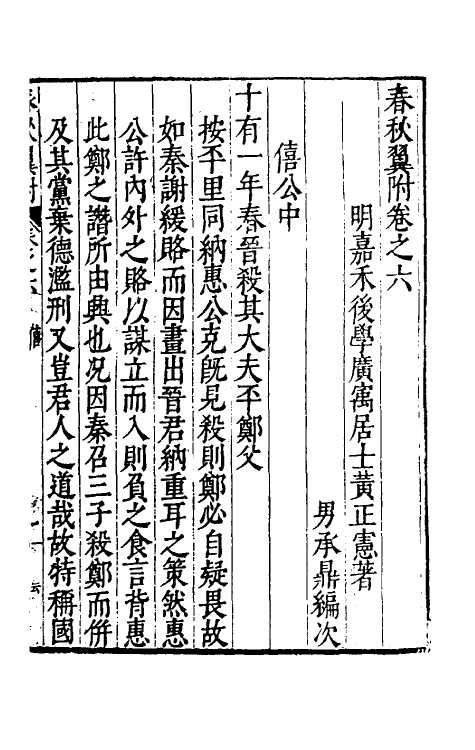 春秋翼附卷之六
明嘉禾後學廣寓居士黃正憲著
男承鼎編次
僖公中
十有一年春晉殺其大夫㔻鄭父
按㔻里同納惠公克旣見殺則鄭必自疑畏故
如秦謝緩賂而因畫出晉君納重耳之策然惠
公許內外之賂以謀立而入則負之食言背惠
此鄭之譖所由興也况因秦召三子殺鄭而併
及其黨棄德濫刑又豈君人之道哉故特稱國